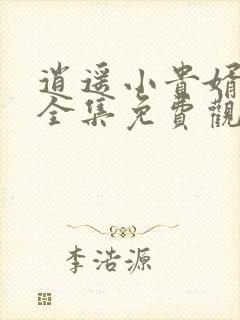 逍遥小貴婿
全集免費觀
李浩源